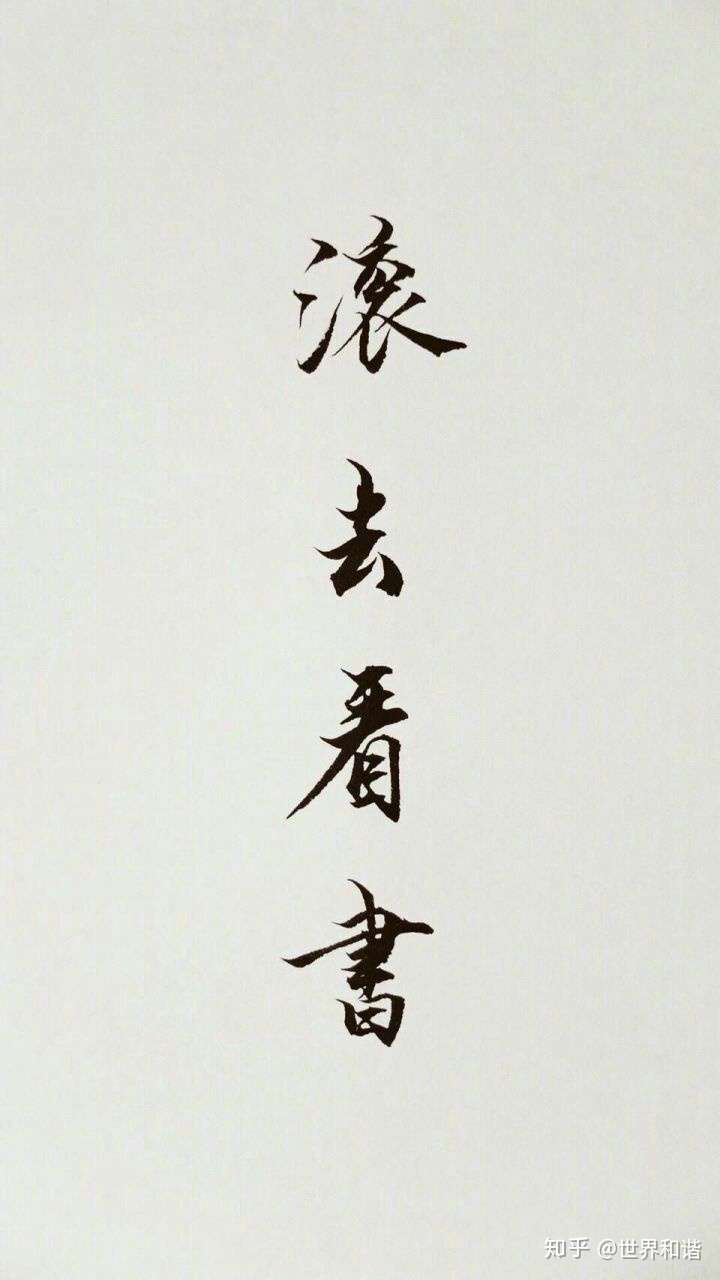 滚去看書
知乎 @世界和谐